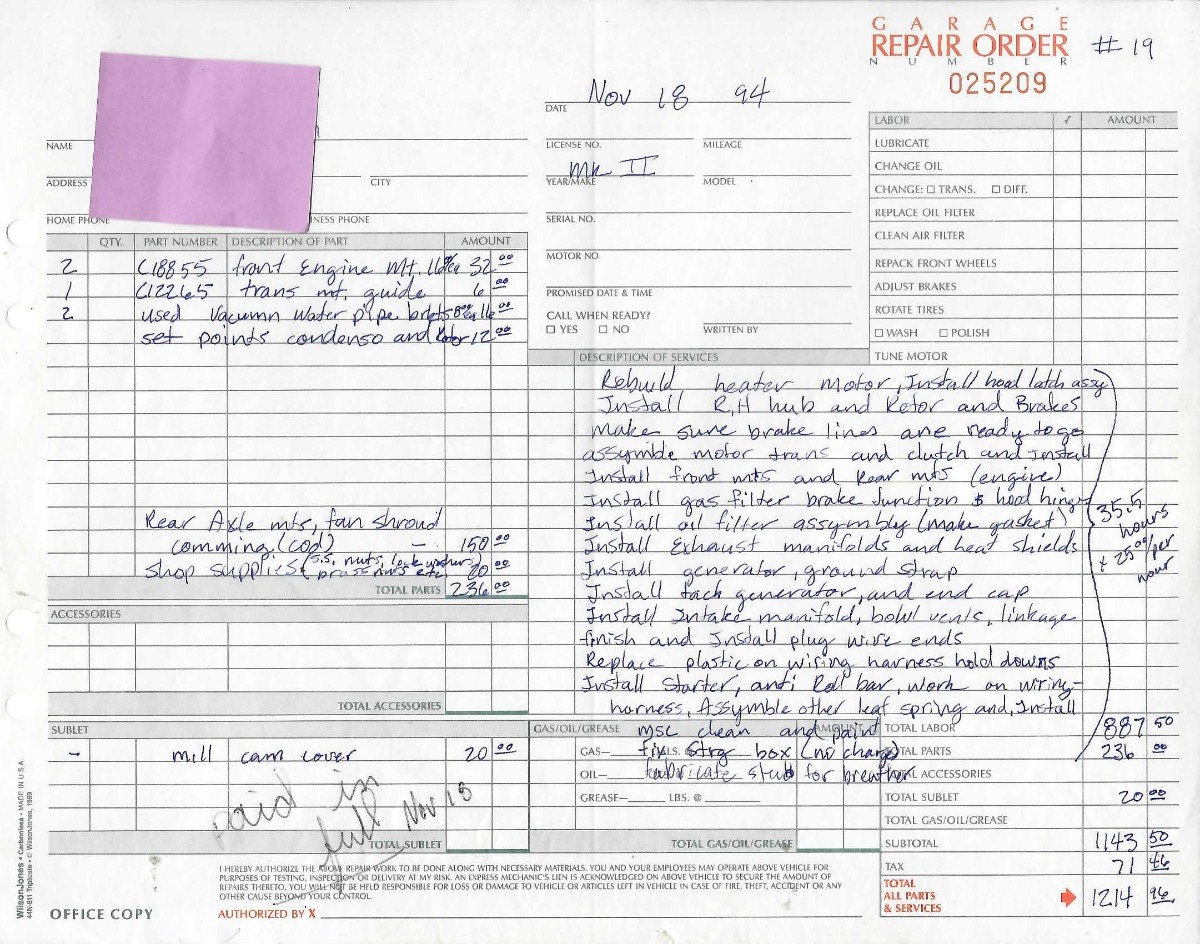 GARAGE
REPAIR ORDER # 19
NUMBER
025209
DATE Nov 18 94
NAME
LICENSE NO. MILEAGE
ADDRESS CITY
YEAR/MAKE MK II MODEL
HOME PHONE INESS PHONE
SERIAL NO.
MOTOR NO.
PROMISED DATE & TIME
CALL WHEN READY?
☐ YES ☐ NO WRITTEN BY
LABOR ✓ AMOUNT
LUBRICATE
CHANGE OIL
CHANGE: ☐ TRANS. ☐ DIFF.
REPLACE OIL FILTER
CLEAN AIR FILTER
REPACK FRONT WHEELS
ADJUST BRAKES
ROTATE TIRES
☐ WASH ☐ POLISH
TUNE MOTOR
QTY. PART NUMBER DESCRIPTION OF PART AMOUNT
2 C18855 front Engine Mt. 32 00
1 C12265 trans mt. guide 6 00
2 used Vacumn Water pipe 16 00
set points condenso and Rotor 12 00
Rear Axle mts, fan shroud
comming (cod) - 150 00
shop supplies (s.s. nuts, lock washers, brass nuts etc 20 00
TOTAL PARTS 236 00
ACCESSORIES
TOTAL ACCESSORIES
SUBLET
- mill cam cover 20 00
paid in
full Nov 18
TOTAL SUBLET
DESCRIPTION OF SERVICES
Rebuild heater motor, Install hood latch assy
Install R,H hub and Rotor and Brakes
make sure brake lines are ready to go
assymble motor trans and clutch and Install
Install front mts and Rear mts (engine)
Install gas filter brake Junction & hood hinges
Install oil filter assymbly (make gasket)
Install Exhaust manifolds and heat shields
Install generator, ground strap
Install tach generator, and end cap
Install Intake manifold, bowl vents, linkage
finish and Install plug wire ends
Replace plastic on wiring harness hold downs
Install Starter, anti Roll bar, work on wiring-
harness, Assymble other leaf spring and, Install
msc clean and paint
fix Strg box (no charge)
fabricate stub for breather
35.5
hours
x 25 00/per
hour
GAS/OIL/GREASE AMOUNT
GAS— LS. @
OIL—
GREASE— LBS. @
TOTAL GAS/OIL/GREASE
TOTAL LABOR 887 50
TOTAL PARTS 236 00
TOTAL ACCESSORIES
TOTAL SUBLET 20 00
TOTAL GAS/OIL/GREASE
SUBTOTAL 1143 50
TAX 71 46
TOTAL
ALL PARTS
& SERVICES 1214 96
I HEREBY AUTHORIZE THE ABOVE REPAIR WORK TO BE DONE ALONG WITH NECESSARY MATERIALS. YOU AND YOUR EMPLOYEES MAY OPERATE ABOVE VEHICLE FOR
PURPOSES OF TESTING, INSPECTION OR DELIVERY AT MY RISK. AN EXPRESS MECHANIC'S LIEN IS ACKNOWLEDGED ON ABOVE VEHICLE TO SECURE THE AMOUNT OF
REPAIRS THERETO. YOU WILL NOT BE HELD RESPONSIBLE FOR LOSS OR DAMAGE TO VEHICLE OR ARTICLES LEFT IN VEHICLE IN CASE OF FIRE, THEFT, ACCIDENT OR ANY
OTHER CAUSE BEYOND YOUR CONTROL.
OFFICE COPY AUTHORIZED BY X
WilsonJones • Carbonless • MADE IN U.S.A.
44N-811 Triplicate • © WilsonJones, 1989